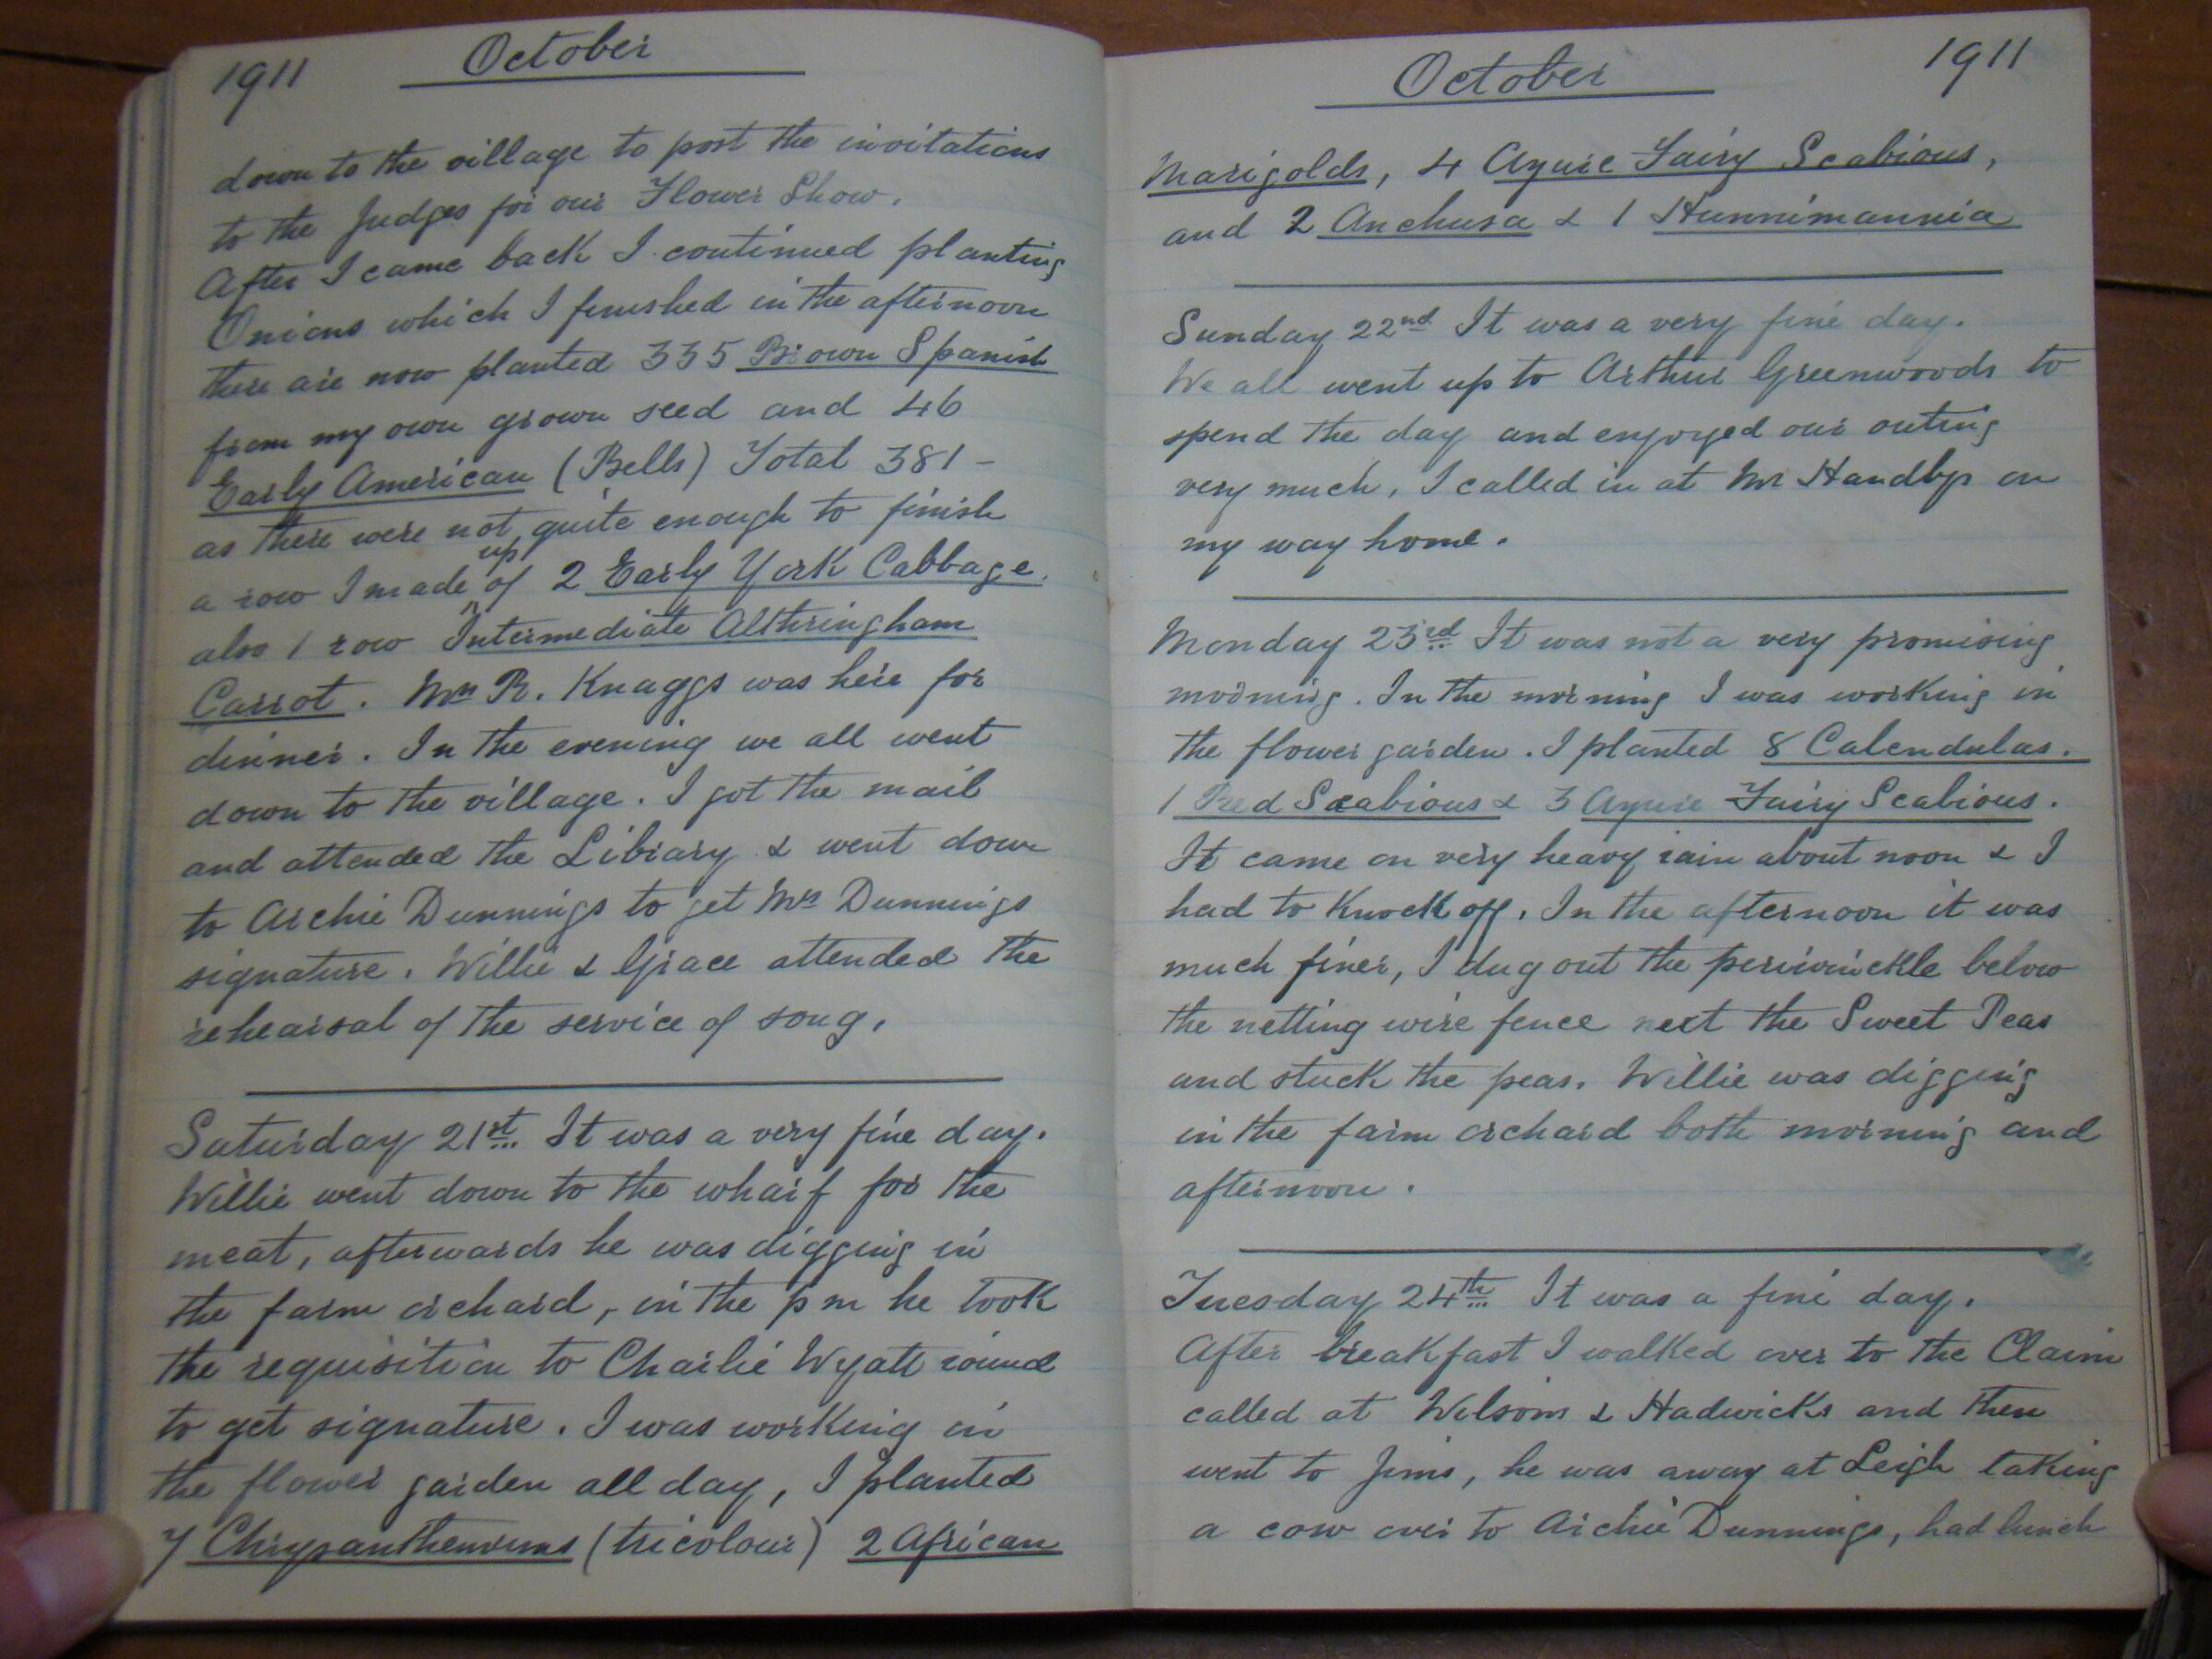 1911 October
down to the village to post the invitations
to the Judges for our Flower Show.
After I came back I continued planting
Onions which I finished in the afternoon
there are now planted 335 Brown Spanish
from my own grown seed and 46
Early American (Bells) Total 381 -
as there were not quite enough to finish
a row I made up of 2 Early York Cabbage.
also 1 row Intermediate Althringham
Carrot. Mrs R. Knaggs was here for
dinner. In the evening we all went
down to the village. I got the mail
and attended the Library & went down
to Archie Dunnings to get Mrs Dunnings
signature. Willie & Grace attended the
rehearsal of the service of song.
Saturday 21st It was a very fine day.
Willie went down to the wharf for the
meat, afterwards he was digging in
the farm orchard, in the pm he took
the requisition to Charlie Wyatt round
to get signature. I was working in
the flower garden all day, I planted
7 Chrysanthemums (tricolour) 2 African
October 1911
Marigolds, 4 Azure Fairy Scabious,
and 2 Anchusa & 1 Hunnimannia
Sunday 22nd It was a very fine day.
We all went up to Arthur Greenwoods to
spend the day and enjoyed our outing
very much, I called in at Mr Handbys on
my way home.
Monday 23rd It was not a very promising
morning. In the morning I was working in
the flower garden. I planted 8 Calendulas.
1 Red Scabious & 3 Azure Fairy Scabious.
It came on very heavy rain about noon & I
had to Knock off. In the afternoon it was
much finer, I dug out the periwinckle below
the netting wire fence next the Sweet Peas
and stuck the peas. Willie was digging
in the farm orchard both morning and
afternoon.
Tuesday 24th It was a fine day.
After breakfast I walked over to the Claim
called at Wilsons & Hadwicks and then
went to Jims, he was away at Leigh taking
a cow over to Archie Dunnings, had lunch